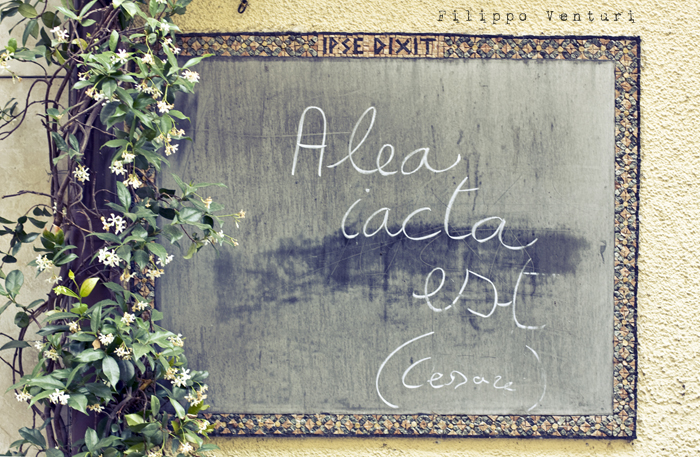 Filippo Venturi
IPSE DIXIT
Alea
iacta
est
(Cesare)